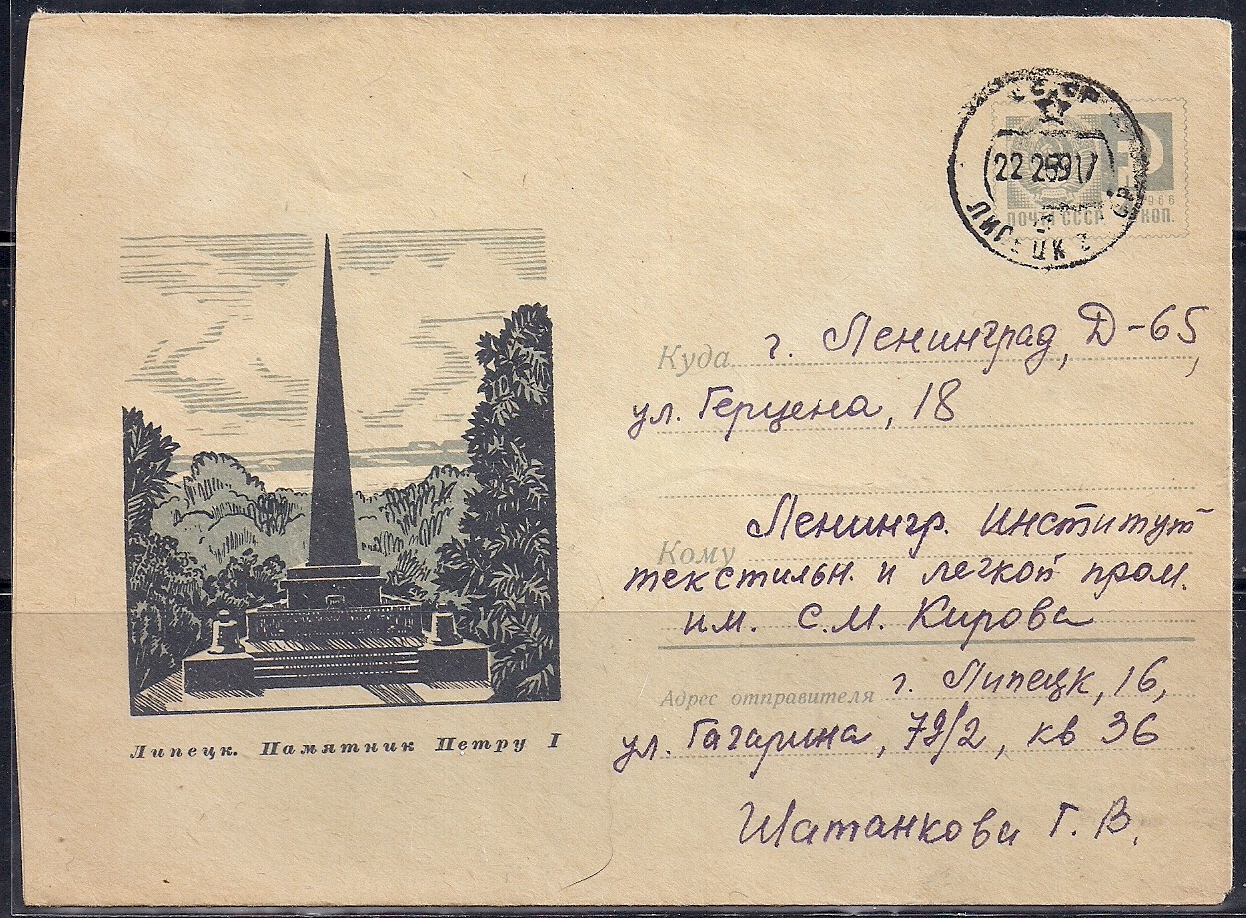 СССР
22 2 69 17
ЛИПЕЦК
ПОЧТА СССР
1966
КОП.
Куда г. Ленинград, Д-65,
ул. Герцена, 18
Ленингр. институт
Кому
текстильн. и легкой пром.
им. С.М. Кирова
Адрес отправителя г. Липецк, 16,
ул. Гагарина, 79/2, кв 36
Шатанкова Г. В.
Липецк. Памятник Петру I